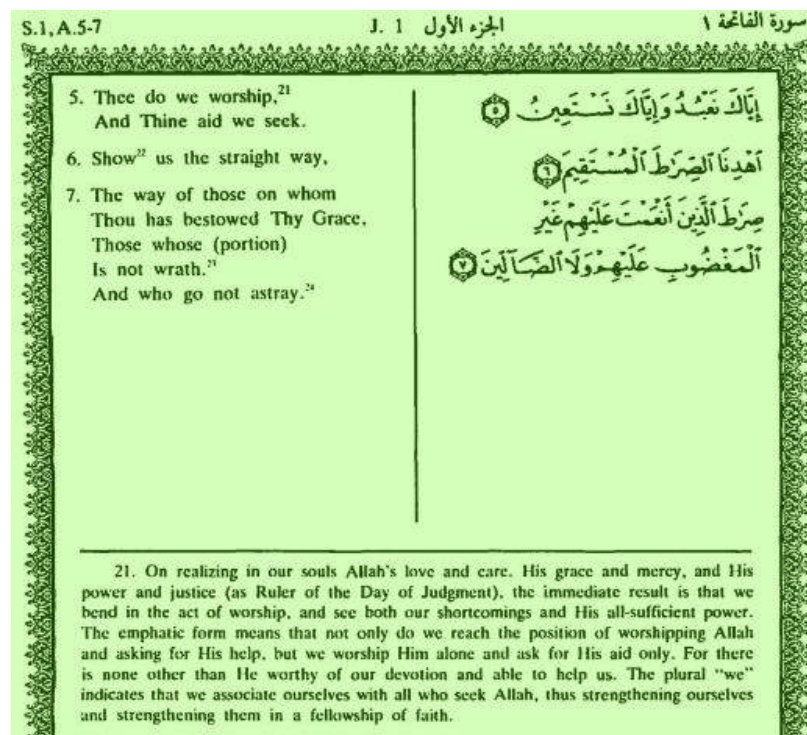 S.1, A.5-7 J. 1 الجزء الأول سورة الفاتحة ١
5. Thee do we worship,²¹
And Thine aid we seek.
6. Show²² us the straight way,
7. The way of those on whom
Thou has bestowed Thy Grace,
Those whose (portion)
Is not wrath.²³
And who go not astray.²⁴
إِيَّاكَ نَعْبُدُ وَإِيَّاكَ نَسْتَعِينُ ٥
ٱهْدِنَا ٱلصِّرَٰطَ ٱلْمُسْتَقِيمَ ٦
صِرَٰطَ ٱلَّذِينَ أَنْعَمْتَ عَلَيْهِمْ غَيْرِ
ٱلْمَغْضُوبِ عَلَيْهِمْ وَلَا ٱلضَّآلِّينَ ٧
21. On realizing in our souls Allah's love and care. His grace and mercy, and His
power and justice (as Ruler of the Day of Judgment), the immediate result is that we
bend in the act of worship, and see both our shortcomings and His all-sufficient power.
The emphatic form means that not only do we reach the position of worshipping Allah
and asking for His help, but we worship Him alone and ask for His aid only. For there
is none other than He worthy of our devotion and able to help us. The plural "we"
indicates that we associate ourselves with all who seek Allah, thus strengthening ourselves
and strengthening them in a fellowship of faith.